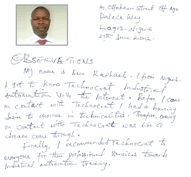 Off
Palace Way,
Lagos-Nigeria
25th June
OBSERVATIONS
My name is Raphael. I from Nigeria.
I got to know Technocrat Industrial
Automation via the internet. Before I came
in contact with Technocrat I had a
him to in Therefore, coming
in contact with Technocrat was like a
dream come through.
Finally, I recommend Technocrat to
everyone for their professional services towards
Industrial automation training.